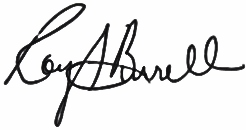 Roy S Burrell